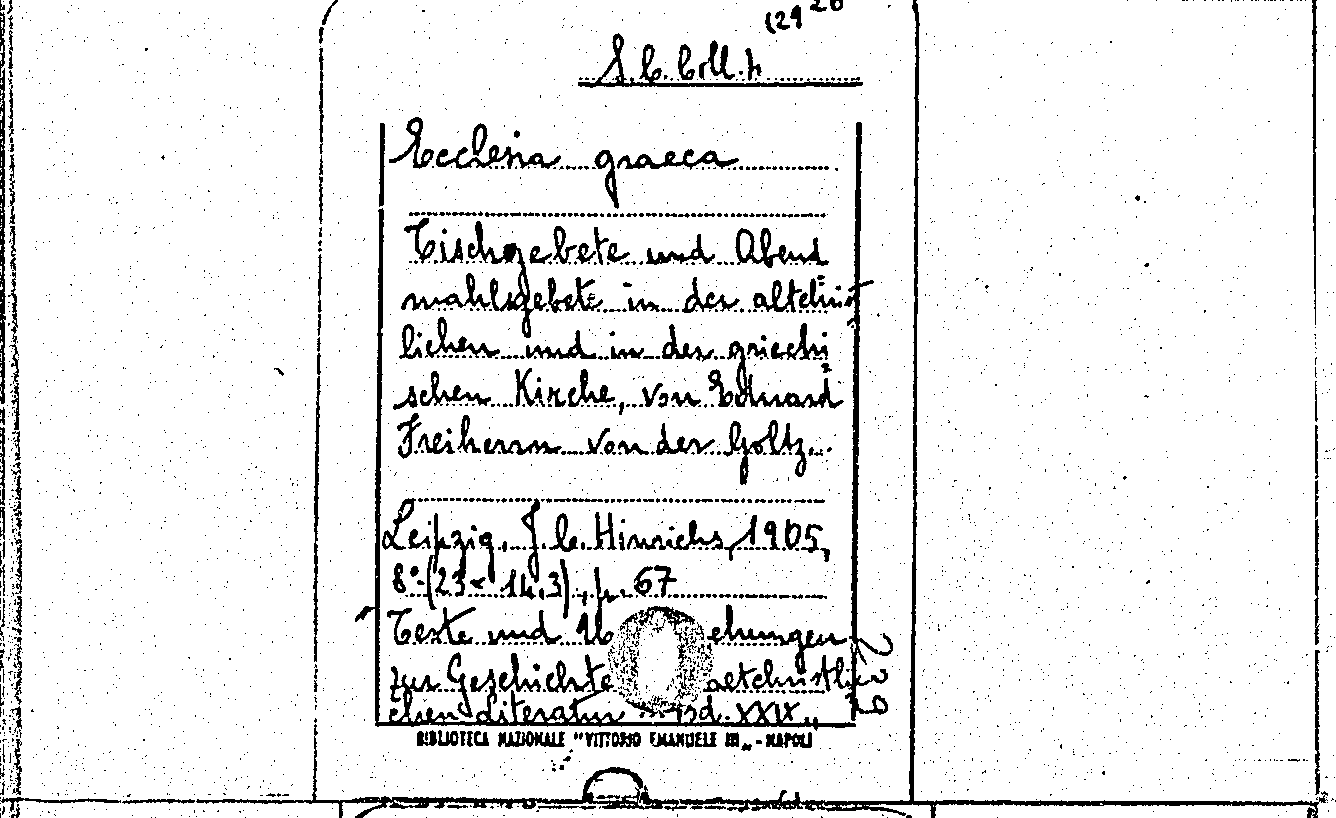 (29 20
S. C. Coll. h
Ecclesia graeca
Tischgebete und Abend
mahlsgebete in der altchrist
lichen und in der griechi
schen Kirche, von Eduard
Freiherrn von der Goltz...
Leipzig, J. C. Hinrichs, 1905,
8°-(23 × 14,3), p. 67
"Texte und chungen
zur Geschichte altchristli
chen Literatur Bd. XXIX"
BIBLIOTECA NAZIONALE "VITTORIO EMANUELE III" - NAPOLI